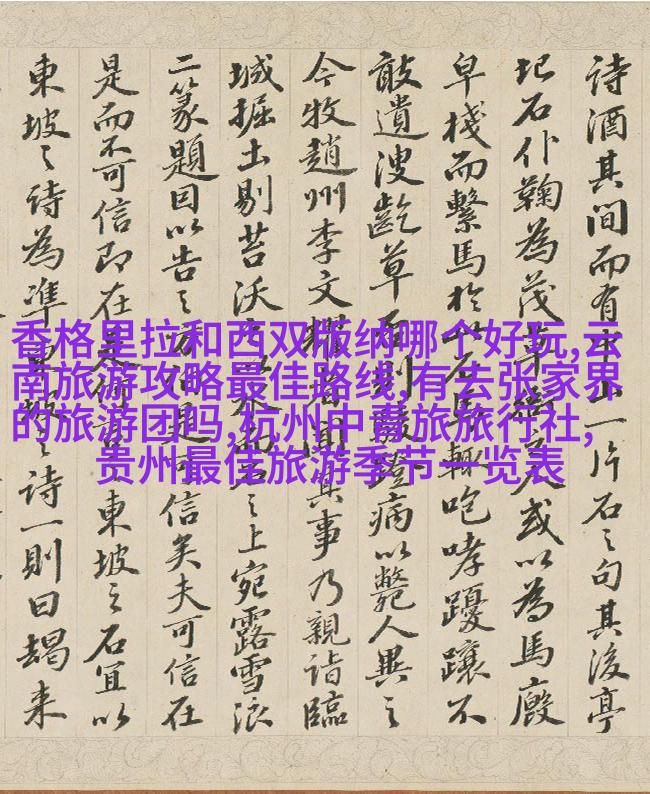 詩酒其間而有中山一片石之句其後亭
圮石仆鞠為茂草之人或以為馬廄
皁棧而繫馬於石馬輒咆哮躩躟不
敢遺溲齕草病以斃人異之
今牧趙州李文耀者聞其事乃親詣臨
城掘土剔苔沃之上宛露雪浪
二篆題因以告之方伯是可信矣夫可信在
是而不可信即在是何者東坡之石宜以
東坡之詩為準東坡之詩一則曰朅来
香格里拉和西双版纳哪个好玩,云
南旅游攻略最佳路线,有去张家界
的旅游团吗,杭州中青旅旅行社,
贵州最佳旅游季节一览表